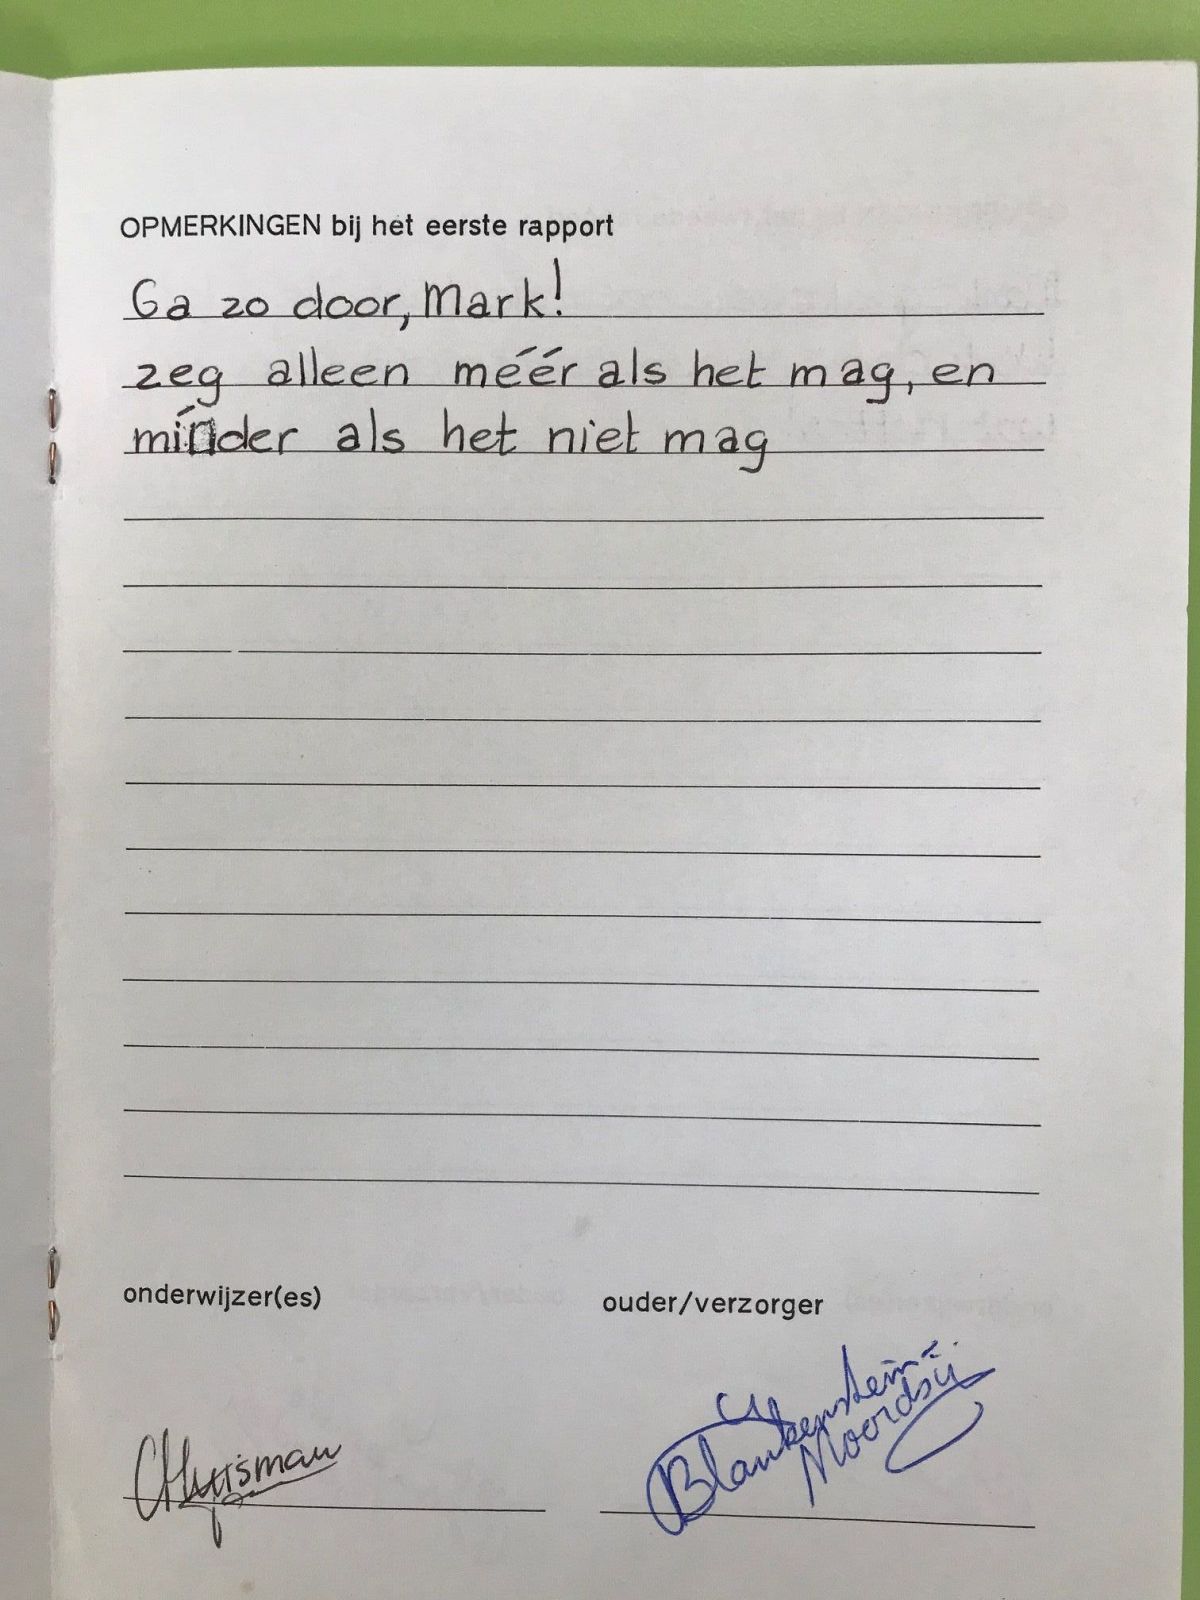 OPMERKINGEN bij het eerste rapport
Ga zo door, Mark!
zeg alleen méér als het mag, en
mínder als het niet mag
onderwijzer(es)
ouder/verzorger
Huisman
Blankenstein-
Noordsij